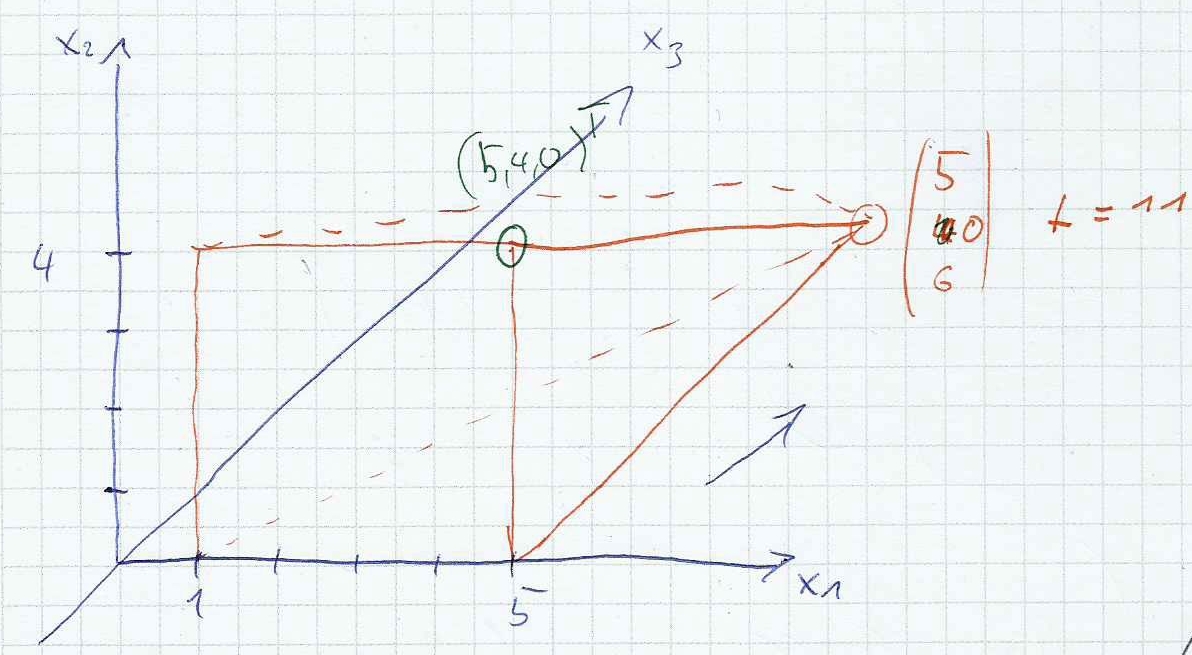 x2
x3
(5,4,0)T
5
0
6
t = 11
4
1
5
x1